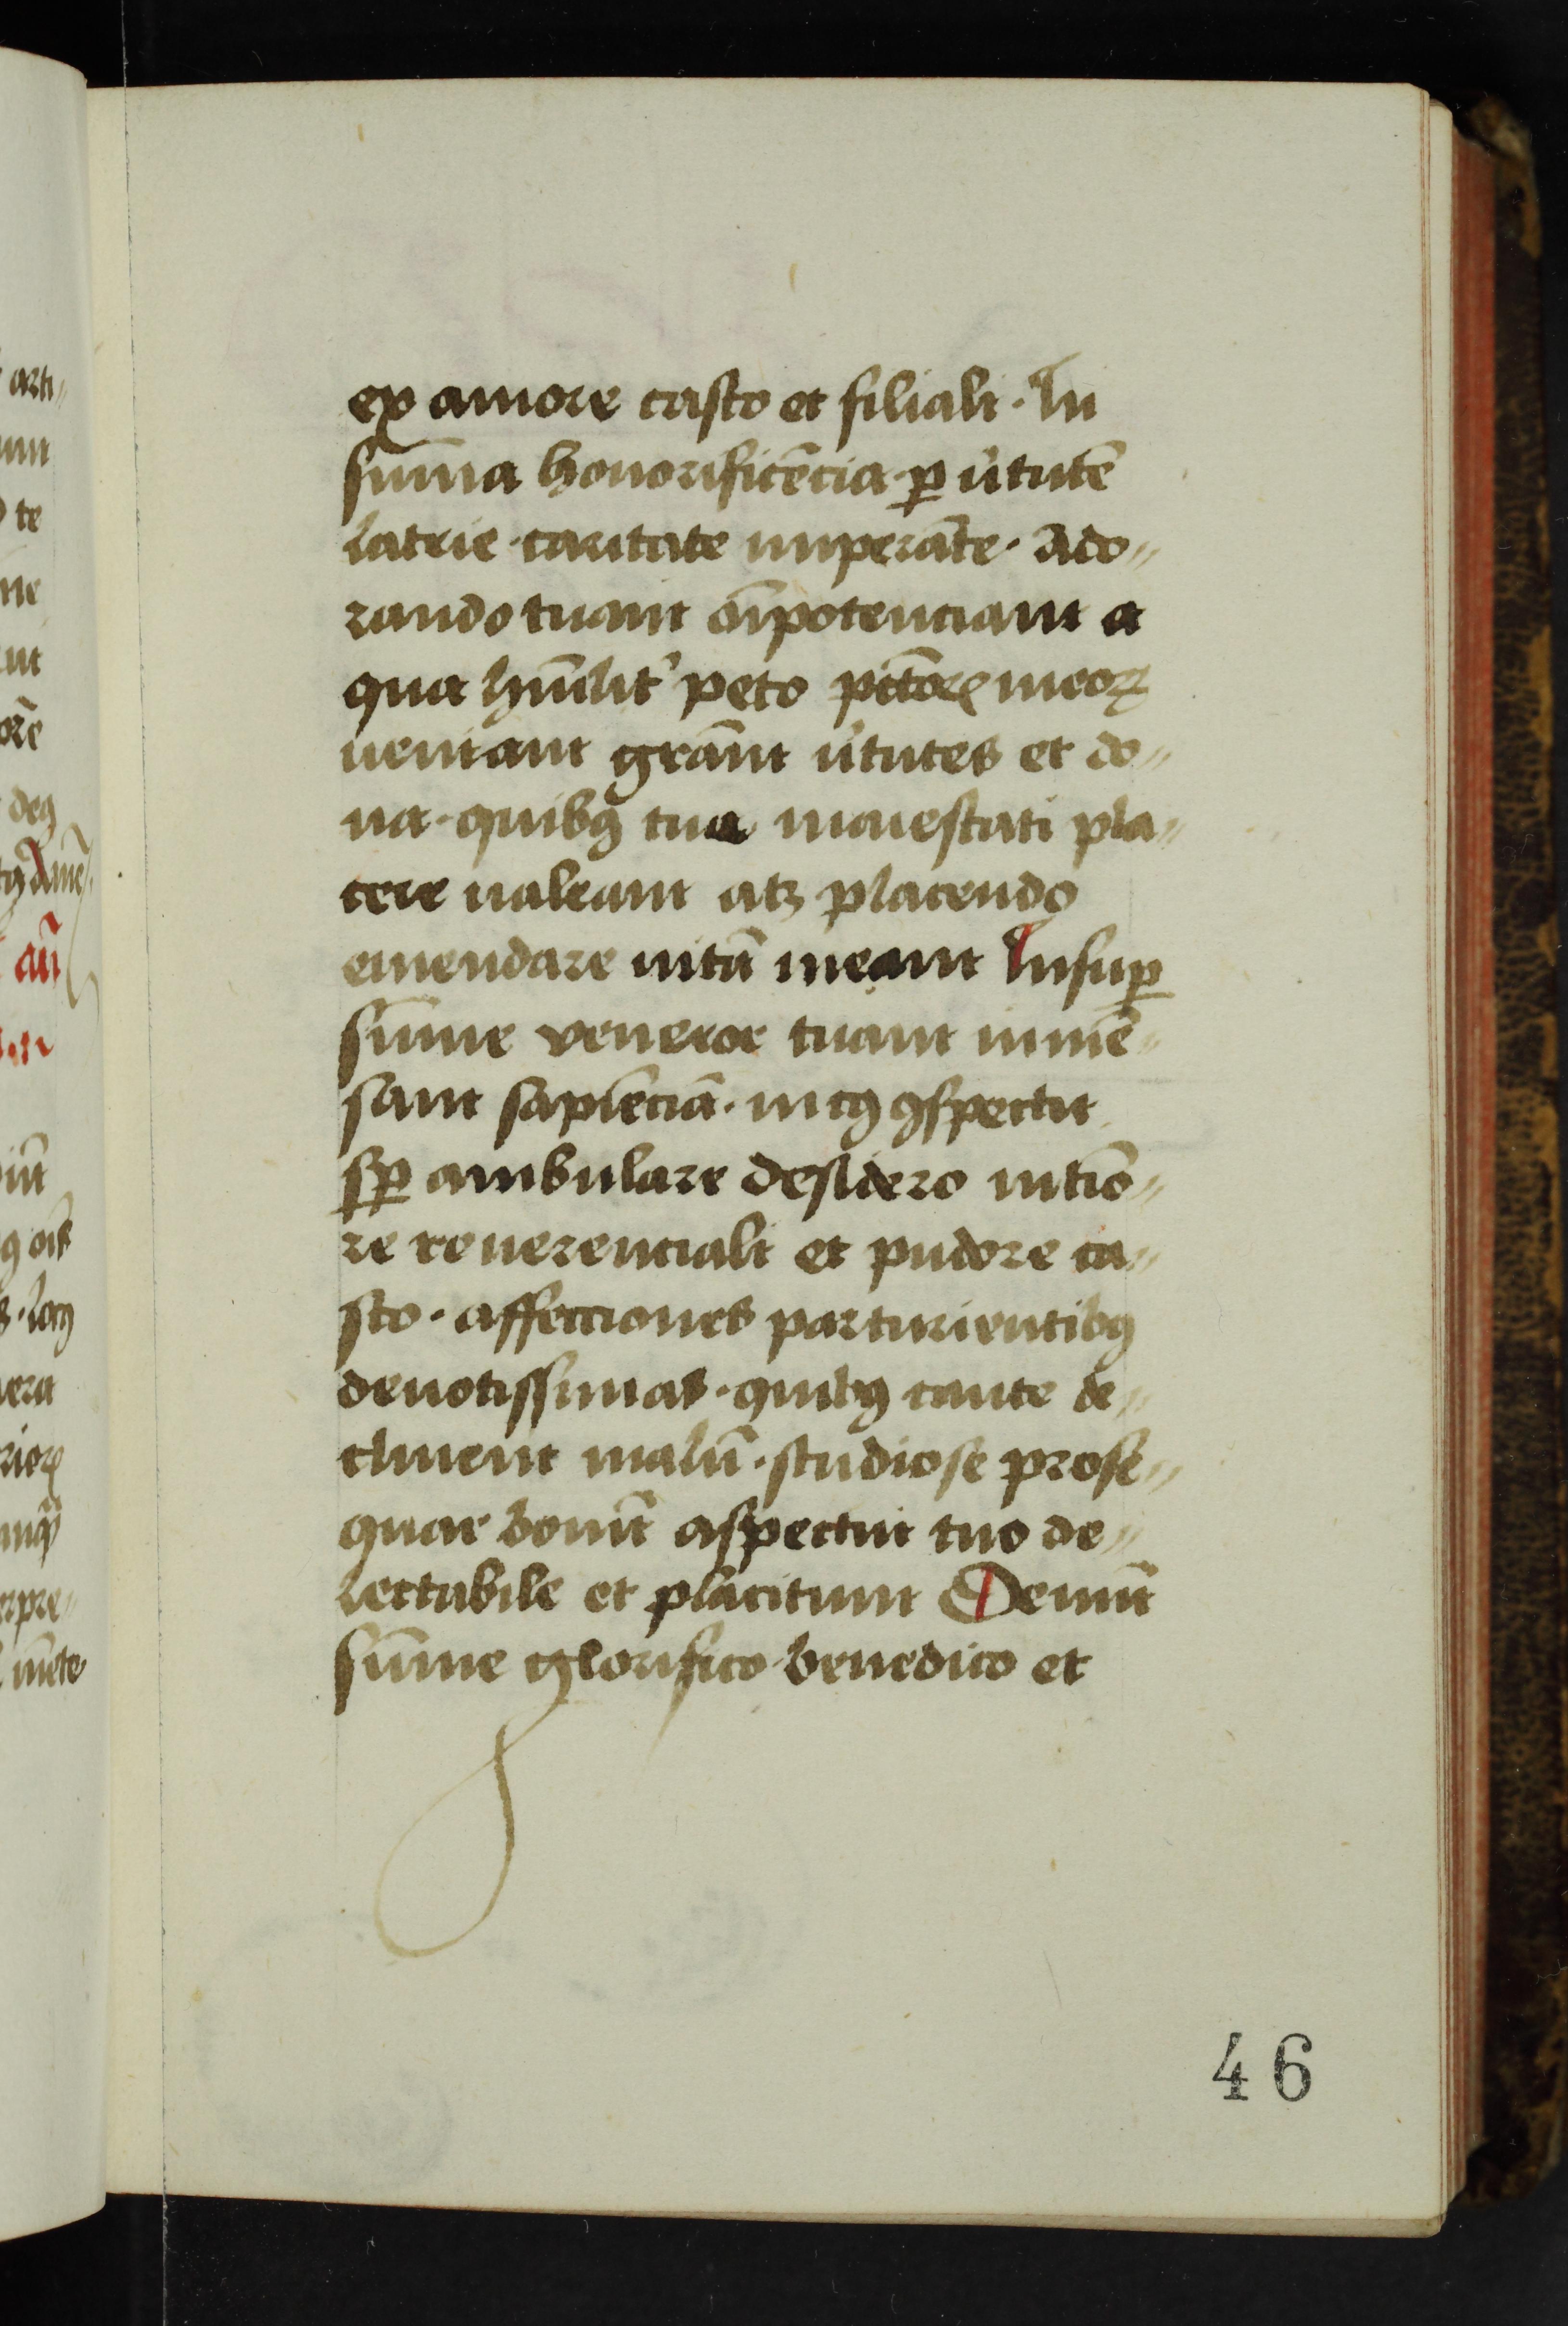 ex amore casto et filiali · In
su̅ma honorifice̅cia · ꝑ u̓tute̅
latrie · caritate impera̅te · Ado〃
rando tuam o̅ipotenciam a
qua hu̅ilit᾽ peto pct̅oꝝ meoꝝ
ueniam gra̅m u̓tutes et do〃
na · quibꝯ tua maiestati pla〃
cere ualeam atꝫ placendo
emendare uita̅ meam Insuꝑ
su̅me veneror tuam i̅me̅〃
sam sapie̅cia̅ · in cꝯ ꝯspectu
sꝑ ambulare desidero in tio̅〃
re reuerenciali et pudore ca〃
sto · affecciones parturientibꝯ
deuotissimas · quibꝯ caute de〃
clinem malu̅ · studiose prose〃
quar bonu̅ aspectui tuo de〃
lectabile et placitum Demu̅
su̅me glorifico benedico et
46